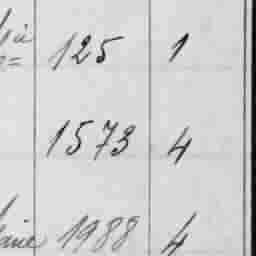 125 1
1573 4
1988 4